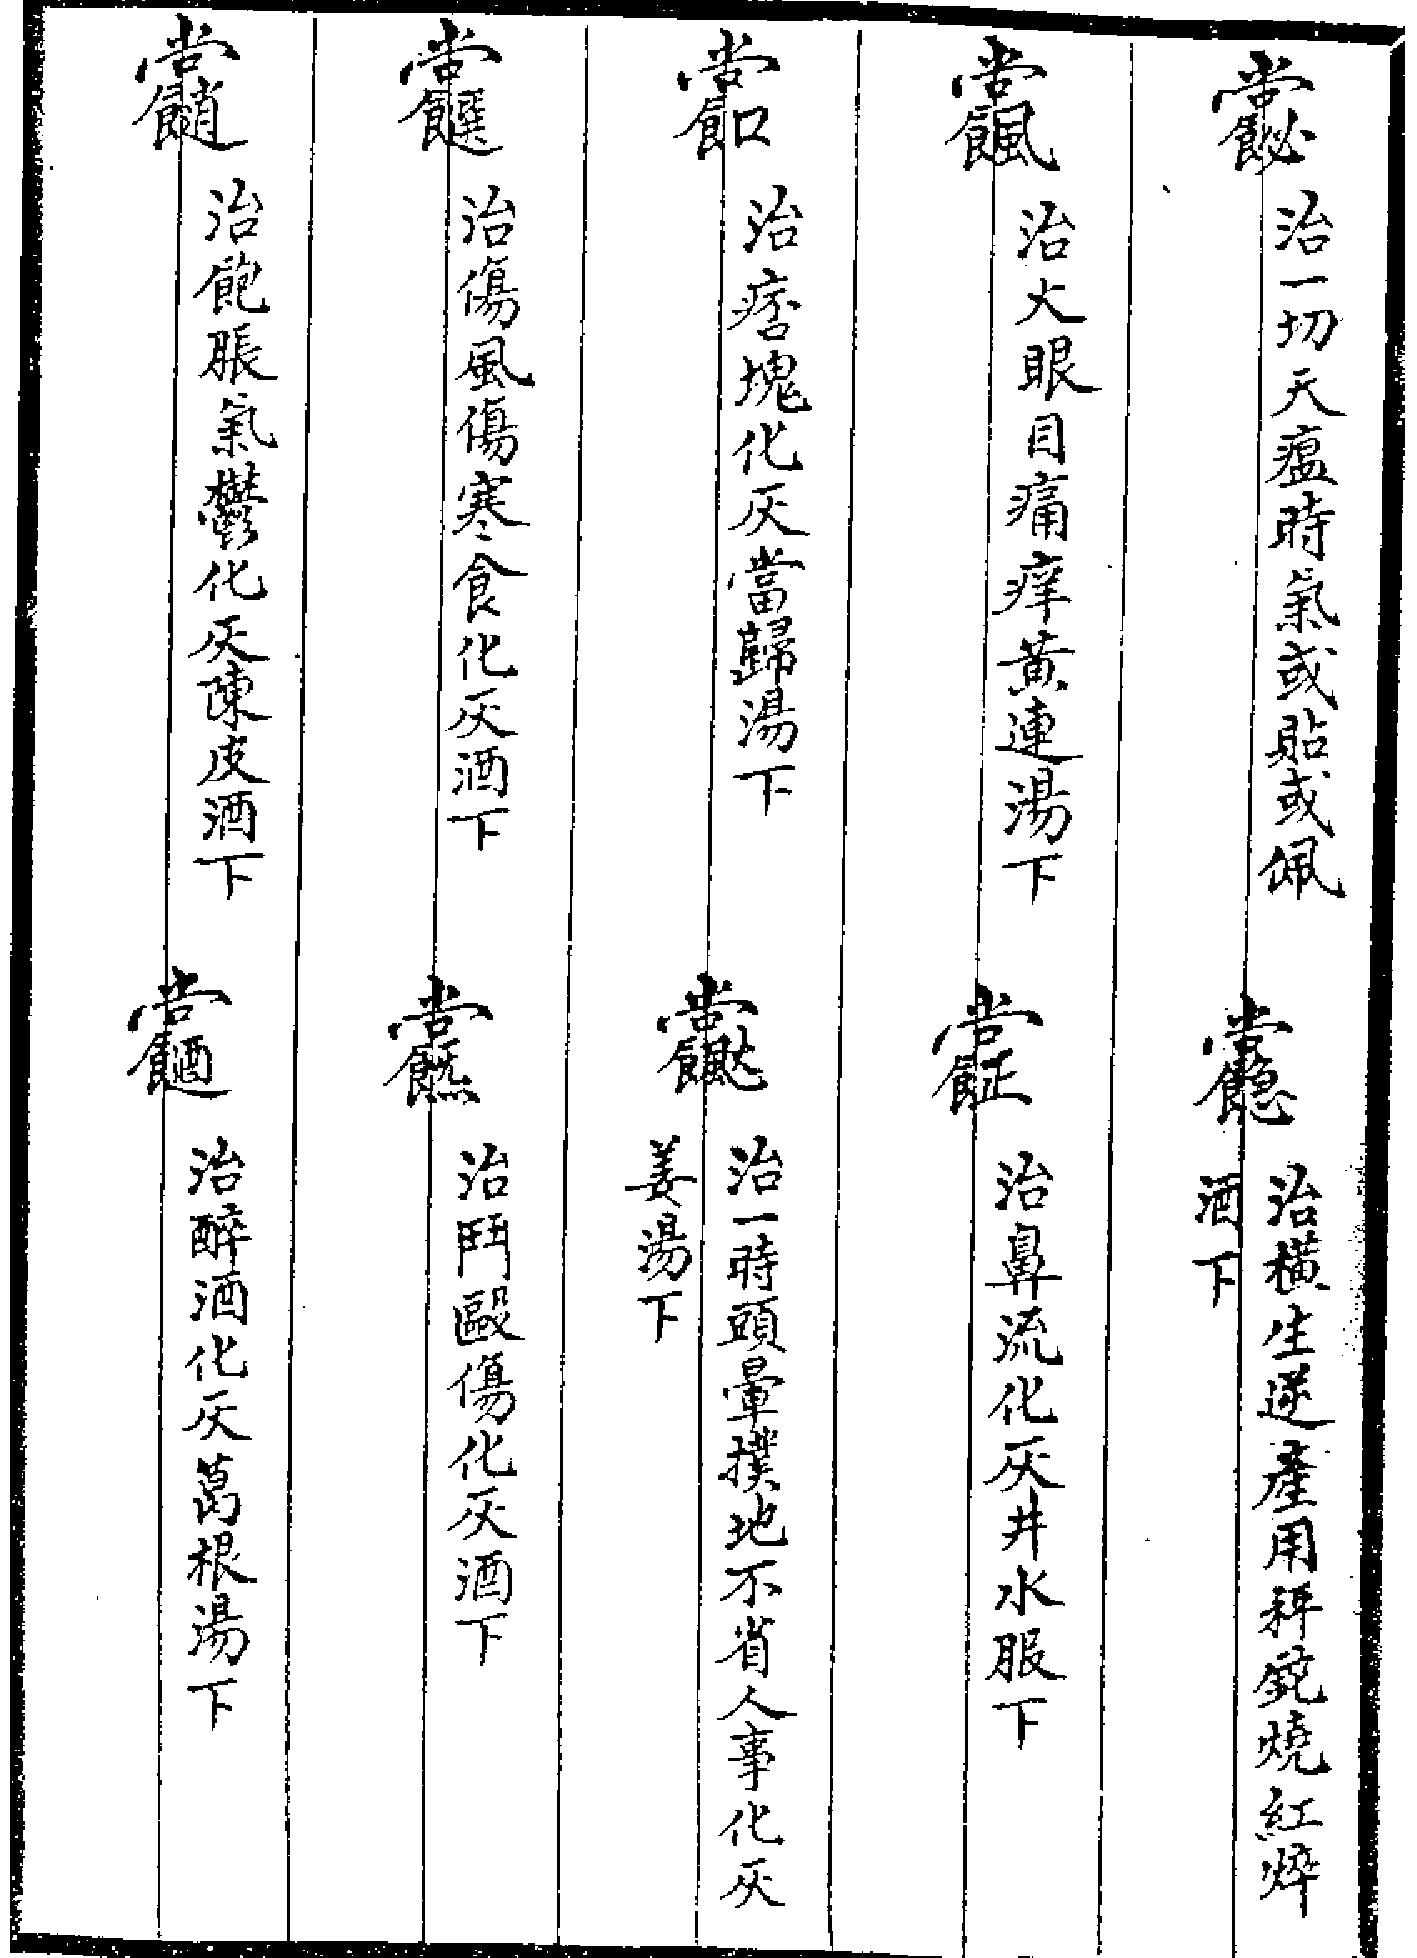 治一切天瘟時氣或貼或佩
治橫生逆產用秤鉈燒紅焠
酒下
治火眼目痛痒黃連湯下
治鼻流化灰井水服下
治痞塊化灰當歸湯下
治一時頭暈撲地不省人事化灰
姜湯下
治傷風傷寒食化灰酒下
治鬥毆傷化灰酒下
治飽脹氣鬱化灰陳皮酒下
治醉酒化灰葛根湯下